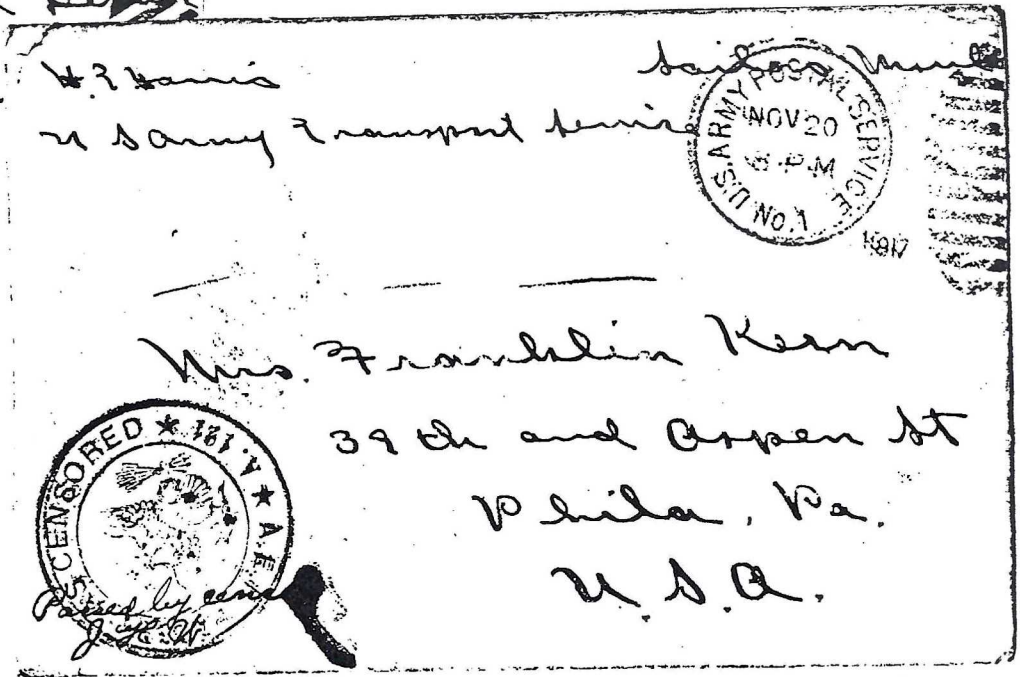 H. R. Harris
U S Army Transport Service
Sailors Mail
U.S. ARMY POSTAL SERVICE
NOV 20
P.M
No. 1
1917
Mrs. Franklin Kern
39th and Aspen St
Phila, Pa.
U. S. A.
CENSORED ★ A.E.
Passed by